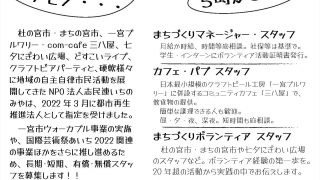 杜の宮市、まちの宮市、一宮ブルワリー・com-cafe 三八屋、七夕にぎわい広場、どすこいライブ、クラフトビアパーティと、硬軟様々に地域の自主自律市民活動を展開してきた NPO 法人志民連いちのみやは、2022 年 3 月に都市再生推進法人として指定を受けました。
一宮市ウォーカブル事業の実施や、国際芸術祭あいち 2022 関連の事業ほかをさらに推し進めるため、長期・短期、有償・無償スタッフを募集します！！
まちづくりマネージャー・スタッフ
月給か時給、時間等応相談。社保等は基準で。
学生・インターンにボランティア活動証明書発行。
カフェ・パブ スタッフ
日本最小規模のクラフトビール工房「一宮ブルワリー」に併設するコミュニティカフェ「三八屋」で、飲食物の提供。
簡単な調理できる人も歓迎。
昼・夕・夜、深夜。短時間も応相談。
まちづくりボランティア スタッフ
杜の宮市やまちの宮市や七夕にぎわい広場のスタッフなど。ボランティア経験の第一歩を。
20 年超の活動から実践の中でお伝えします。